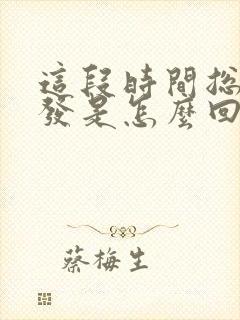 這段時間總
發是怎麼回
蔡梅生